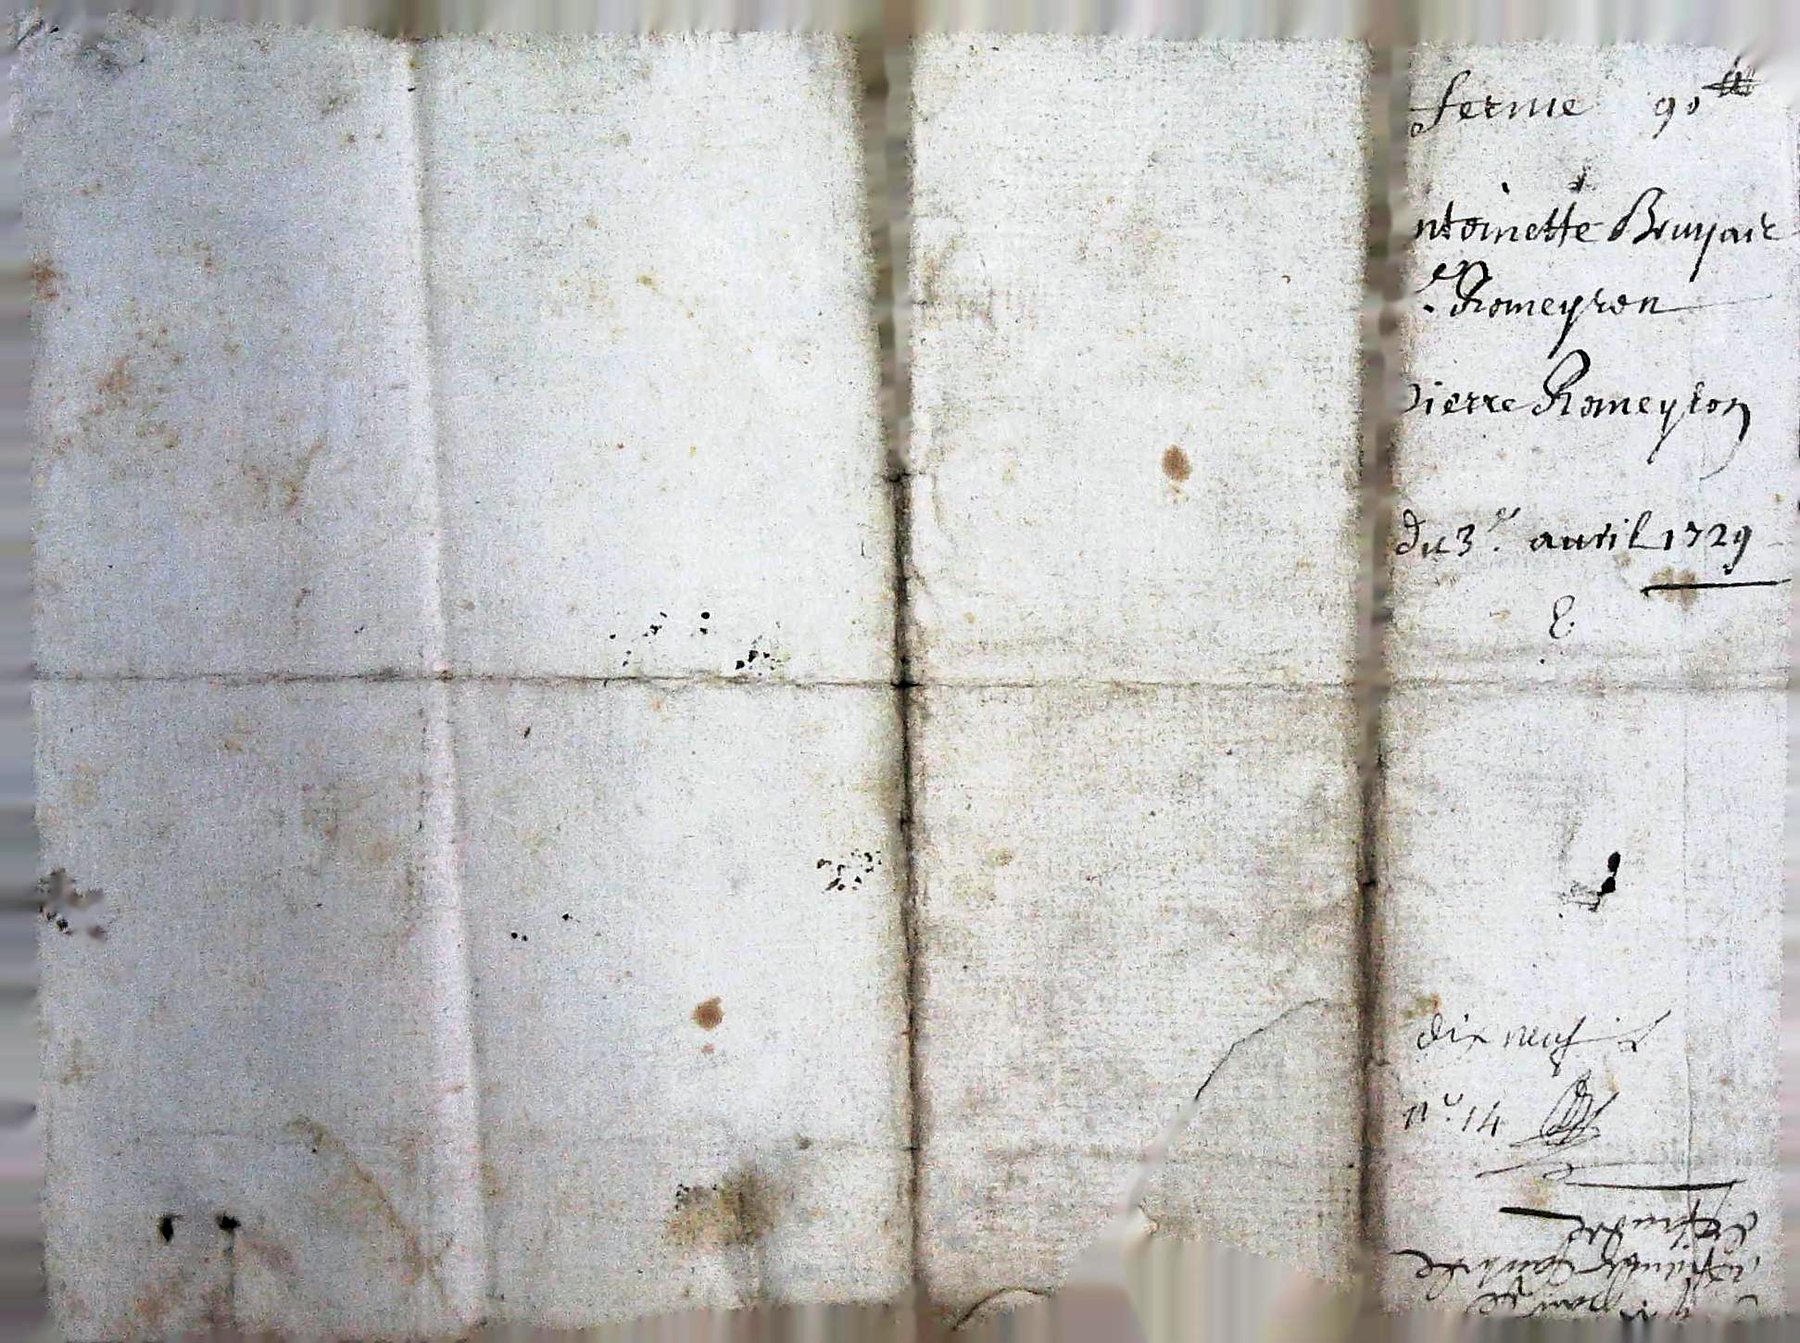 ferme 90 ₶
ntoinette Bruyair
Romeyron
ierre Romeyron
du 3.e avril 1729
dix neuf
n.o 14